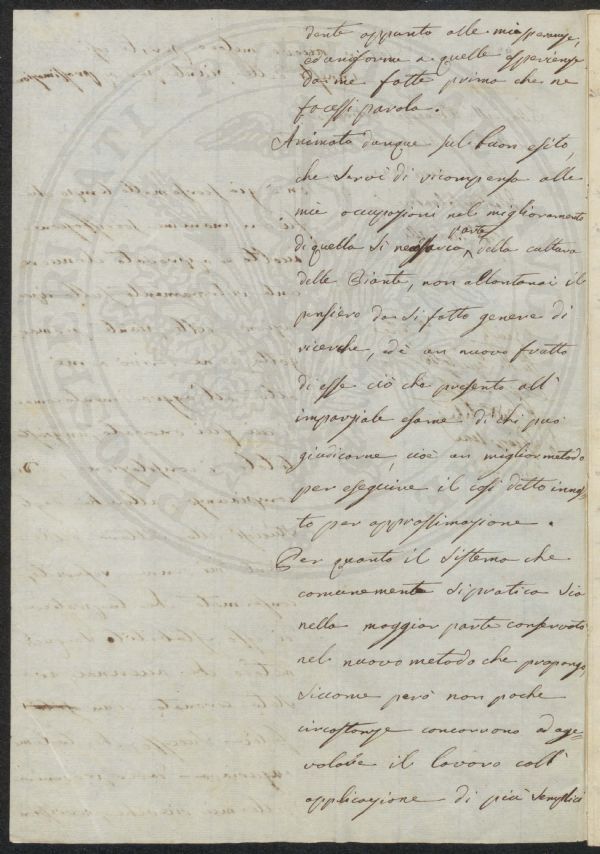 dente appunto alle mie speranze,
ed uniforme a quelle esperienze
da me fatte prima che ne
facessi parola.
Animato dunque sul buon esito,
che servì di ricompensa alle
mie occupazioni nel miglioramento
di quella sì necessaria parte della coltura
delle Piante, non allontanai il
pensiero da sì fatto genere di
ricerche, ed è un nuovo frutto
di esse ciò che presento all'
imparziale esame di chi può
giudicarne, cioè un miglior metodo
per eseguire il così detto innes-
to per approssimazione.
Per quanto il sistema che
comunemente si pratica sia
nella maggior parte conservato
nel nuovo metodo che propongo,
siccome però non poche
circostanze concorrono ad age-
volare il lavoro coll'
applicazione di più semplici